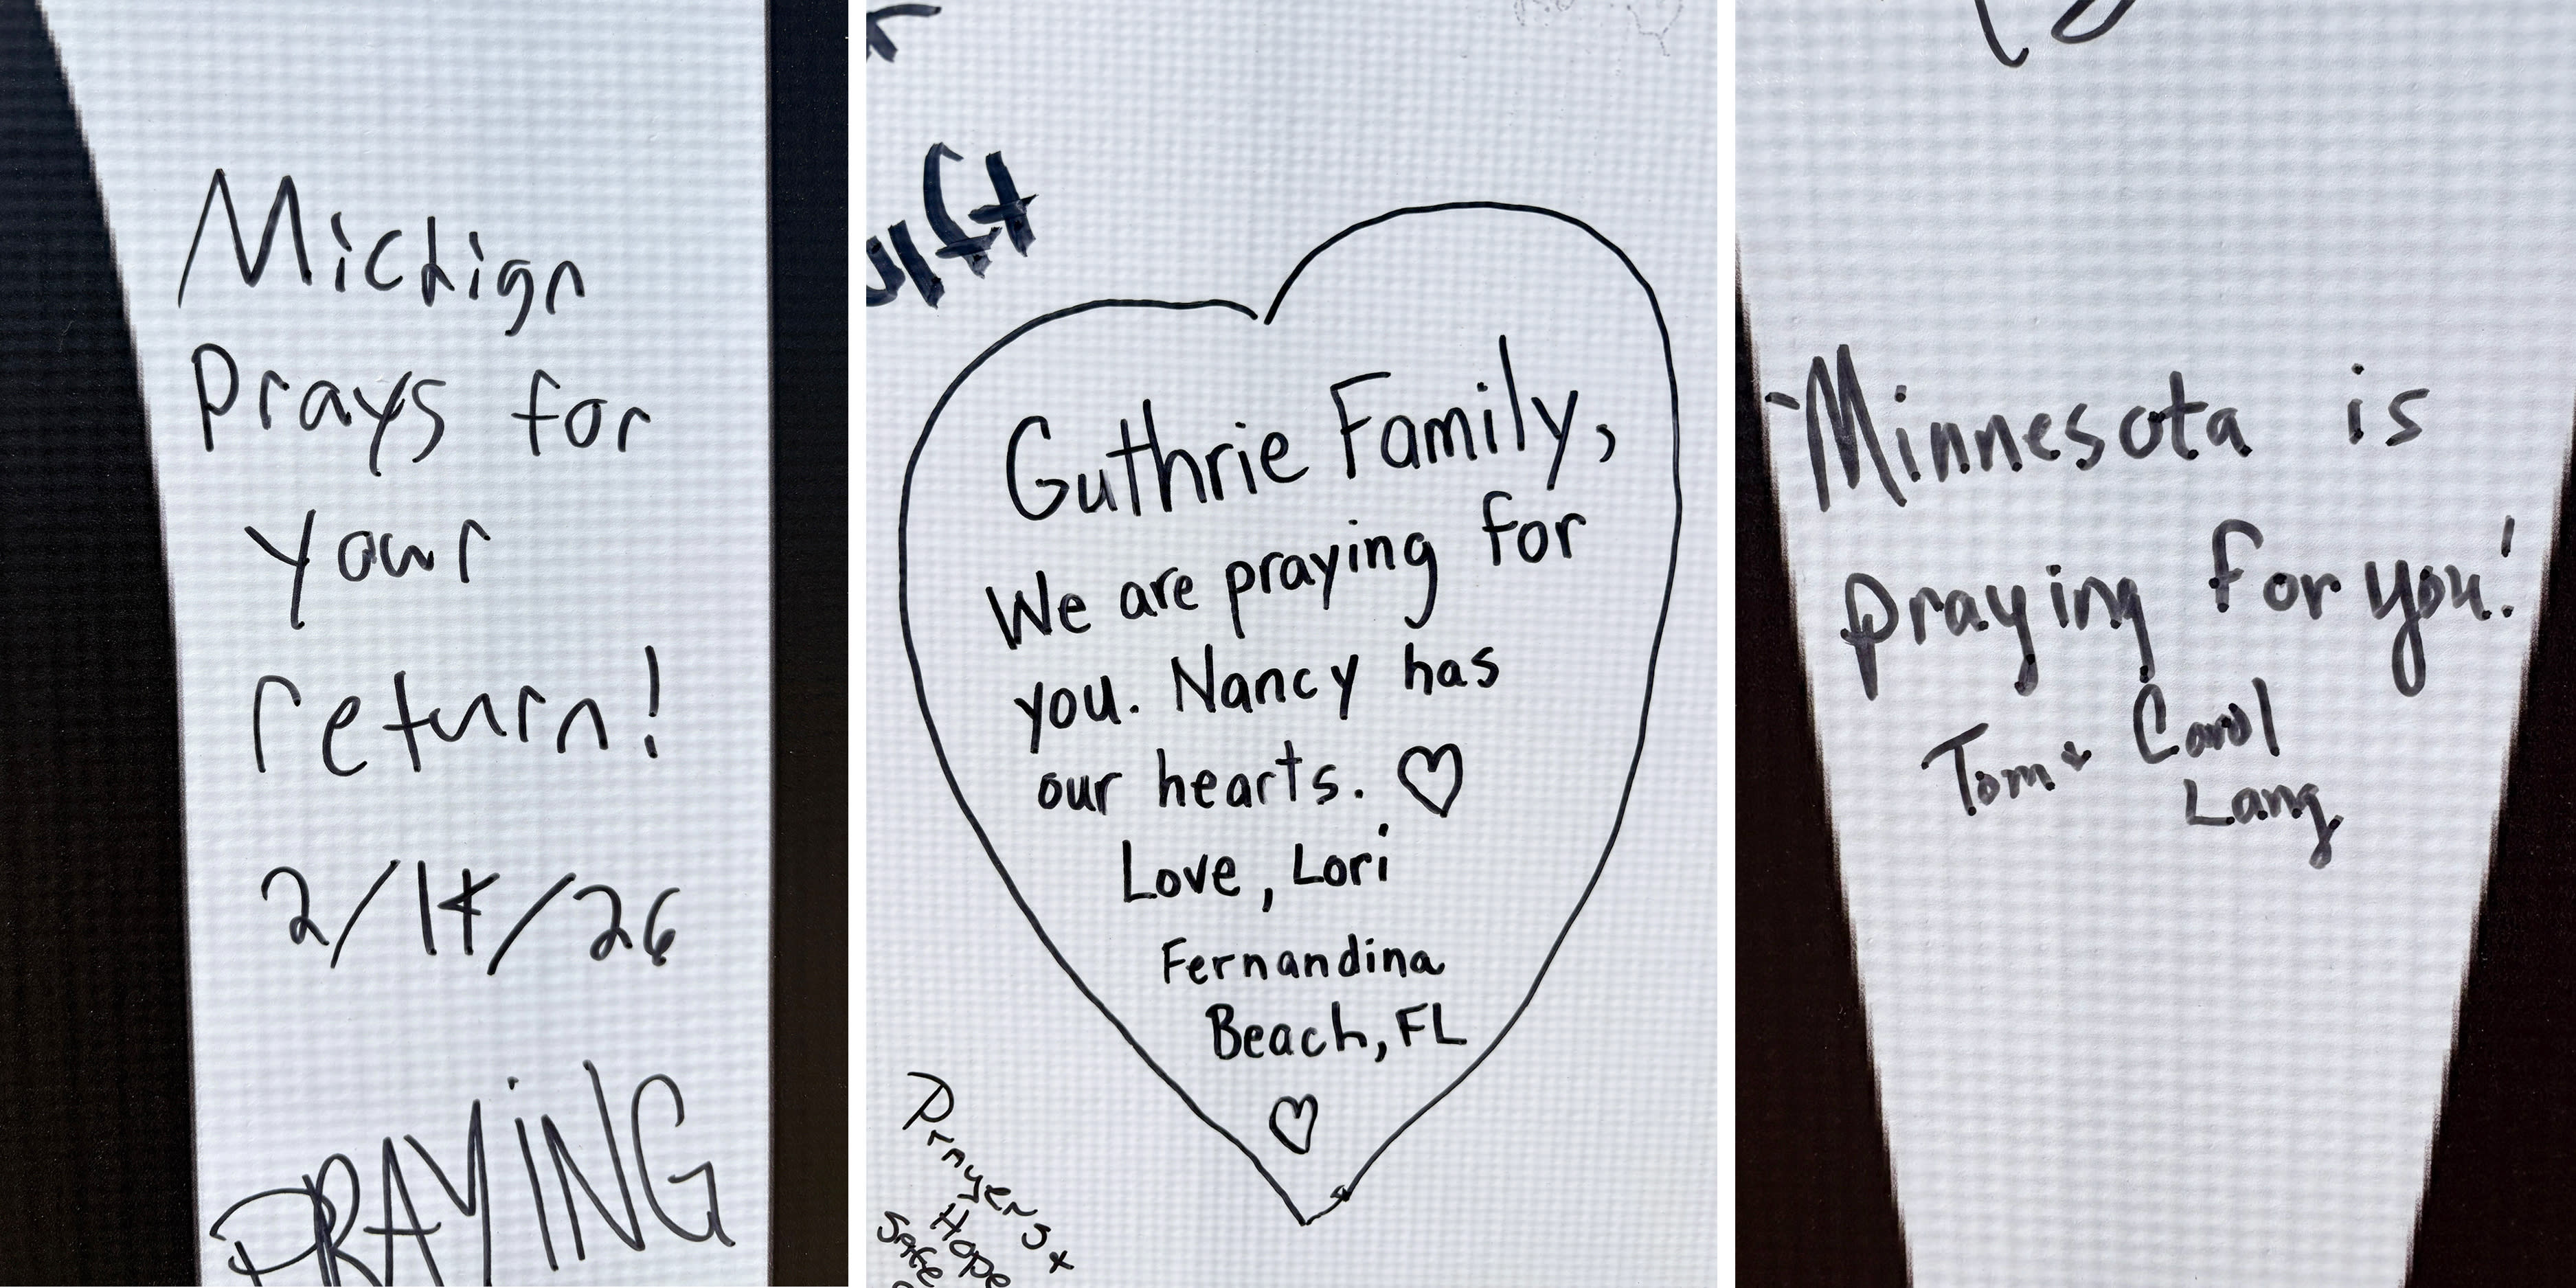 Michign
Prays for
your
return!
2/14/26
PRAYiNG
Guthrie Family,
We are praying for
you. Nancy has
our hearts. ♡
Love, Lori
Fernandina
Beach, FL
♡
Prayers +
Hope
Safe
Minnesota is
praying for you!
Tom + Carol
Lang